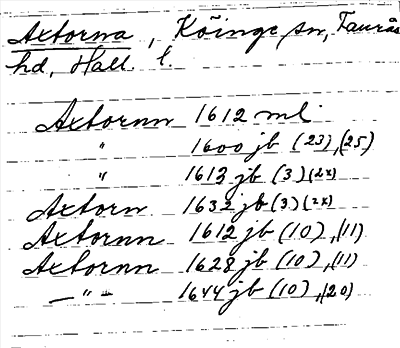 Axtorna, Köinge sn, Faurås
hd, Hall. l.
Axtornn 1612 ml
" 1600 jb (23), (25)
" 1613 jb (3) (2x)
Axtorn 1632 jb (3) (2x)
Axtornn 1612 jb (10), (11)
Axtornn 1628 jb (10), (11)
— " — 1644 jb (10), (20)